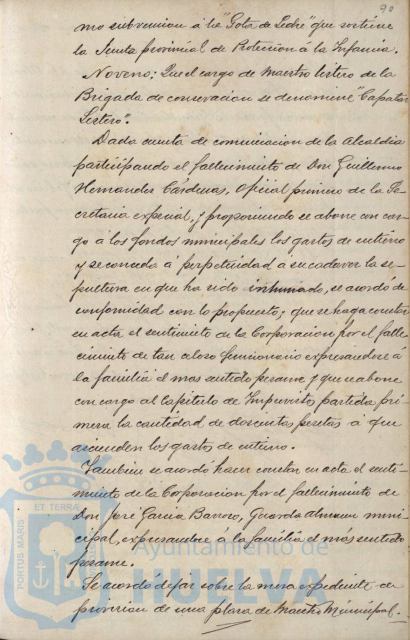 90
mo subvencion á la "Gota de Leche" que sostiene
la Junta provincial de Proteccion á la Infancia.
Noveno: Que el cargo de Maestro listero de la
Brigada de conservacion se denomine "Capataz
Listero".
Dada cuenta de comunicacion de la Alcaldia
participando el fallecimiento de Don Guillermo
Hernandez Cárdenas, Oficial primero de la Se-
cretaria especial, y proponiendo se abone con car-
go á los fondos municipales los gastos de entierro
y se conceda á perpetuidad á su cadaver la se-
pultura en que ha sido inhumado, se acordó de
conformidad con lo propuesto, y que se haga constar
en acta el sentimiento de la Corporacion por el falle-
cimiento de tan celoso funcionario expresandose á
la familia el mas sentido pesame y que se abone
con cargo al Capitulo de Imprevistos partida pri-
mera la cantidad de doscientas pesetas a que
ascienden los gastos de entierro.
Tambien se acordó hacer constar en acta el senti-
miento de la Corporacion por el fallecimiento de
Don José Garcia Barroso, Guarda almacen muni-
cipal, expresandose a la familia el mas sentido
pesame.
Se acordó dejar sobre la mesa expediente de
provision de una plaza de Maestro Municipal.
PORTUS MARIS ET TERRAE
Ayuntamiento de
HUELVA